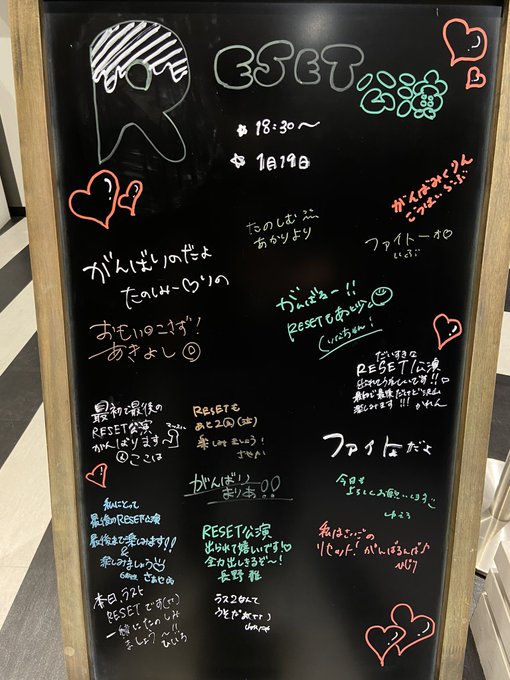 RESET公演
18:30～
1月19日
がんばみくりん
たのしむ
あかりより
ファイトーオ♡
いぶ
がんばりのだよ
たのしみー♡りの
がんばるー!!
RESETもあと
おもいのこさず!
あきよし
だいすきな
RESET公演
出られてうれしいです!!
最初で最後だけど
楽しみます!!! かれん
最初で最後の
RESET公演
がんばります
ここは
RESETも
あと2回
楽しみましょう!
ファイトだよ
がんばり
まりあ!!
今日も
よろしくお願いします
ゆうろ
私にとって
最後のRESET公演
最後まで楽しみます!!
&
楽しみましょう
RESET公演
出られて嬉しいです♡
全力出しきるぞ〜!
長野 雅
私はさいごの
リセット! がんばるんば♪
ひじり
本日、ラスト
RESETです
一緒にたのしみ
ましょう〜!! ひいろ
ラス2なんて
うそだぁ